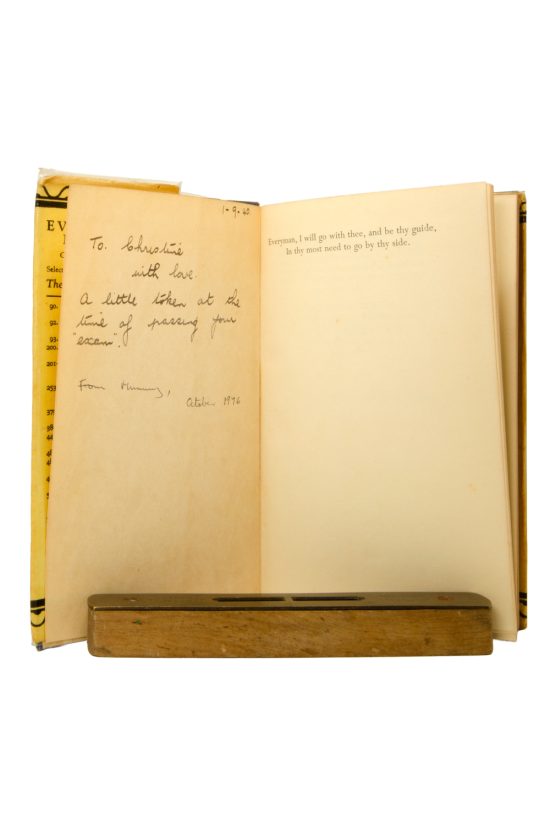 EV
Selec
The
90.
92.
200.
201
253
1-9-60
To. Christine
with love.
A little token at the
time of passing your
"exam".
From Mummy,
October 1976
Everyman, I will go with thee, and be thy guide,
In thy most need to go by thy side.